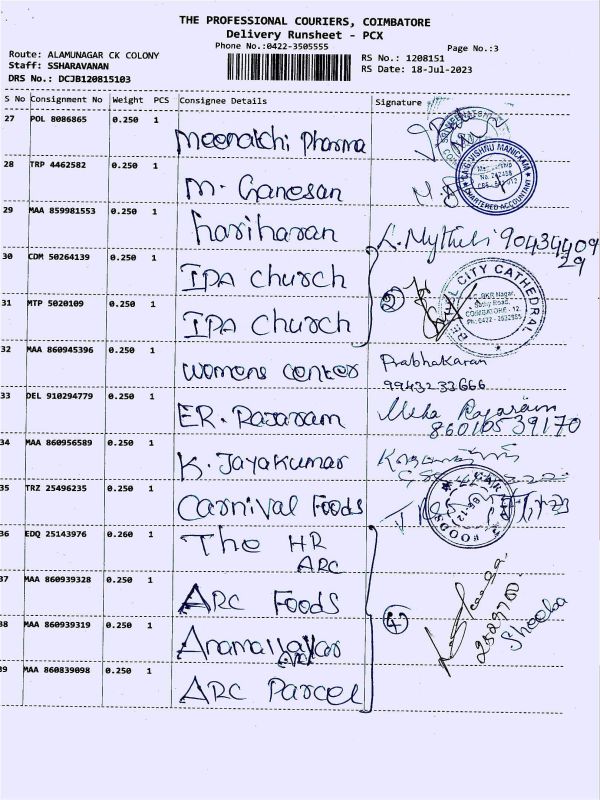 THE PROFESSIONAL COURIERS, COIMBATORE
Delivery Runsheet - PCX
Phone No.:0422-3505555
Page No.:3
Route: ALAMUNAGAR CK COLONY
Staff: SSHARAVANAN
DRS No.: DCJB120815103
RS No.: 1208151
RS Date: 18-Jul-2023
S No Consignment No Weight PCS Consignee Details Signature
27 POL 8086865 0.250 1 Meenakchi Pharma
28 TRP 4462582 0.250 1 M. Ganesan
CA G. VISHNU MANICKAM
CHARTERED ACCOUNTANT
29 MAA 859981553 0.250 1 hariharan L. Mythili 90434409
29
30 CDM 50264139 0.250 1 IPA Church
31 MTP 5020109 0.250 1 IPA Church 2
CITY CATHEDRAL
COIMBATORE - 12.
32 MAA 860945396 0.250 1 womens center Prabhakaran
9943233666
33 DEL 910294779 0.250 1 ER. Rajaram Meha Rajaram
8601053 9170
34 MAA 860956589 0.250 1 K. Jayakumar
35 TRZ 25496235 0.250 1 Carnival Foods
FOODS
36 EDQ 25143976 0.260 1 The HR
ARC
37 MAA 860939328 0.250 1 ARC Foods 4
38 MAA 860939319 0.250 1 Anamallayar
ARC
Sheeba
39 MAA 860839098 0.250 1 ARC Parcel